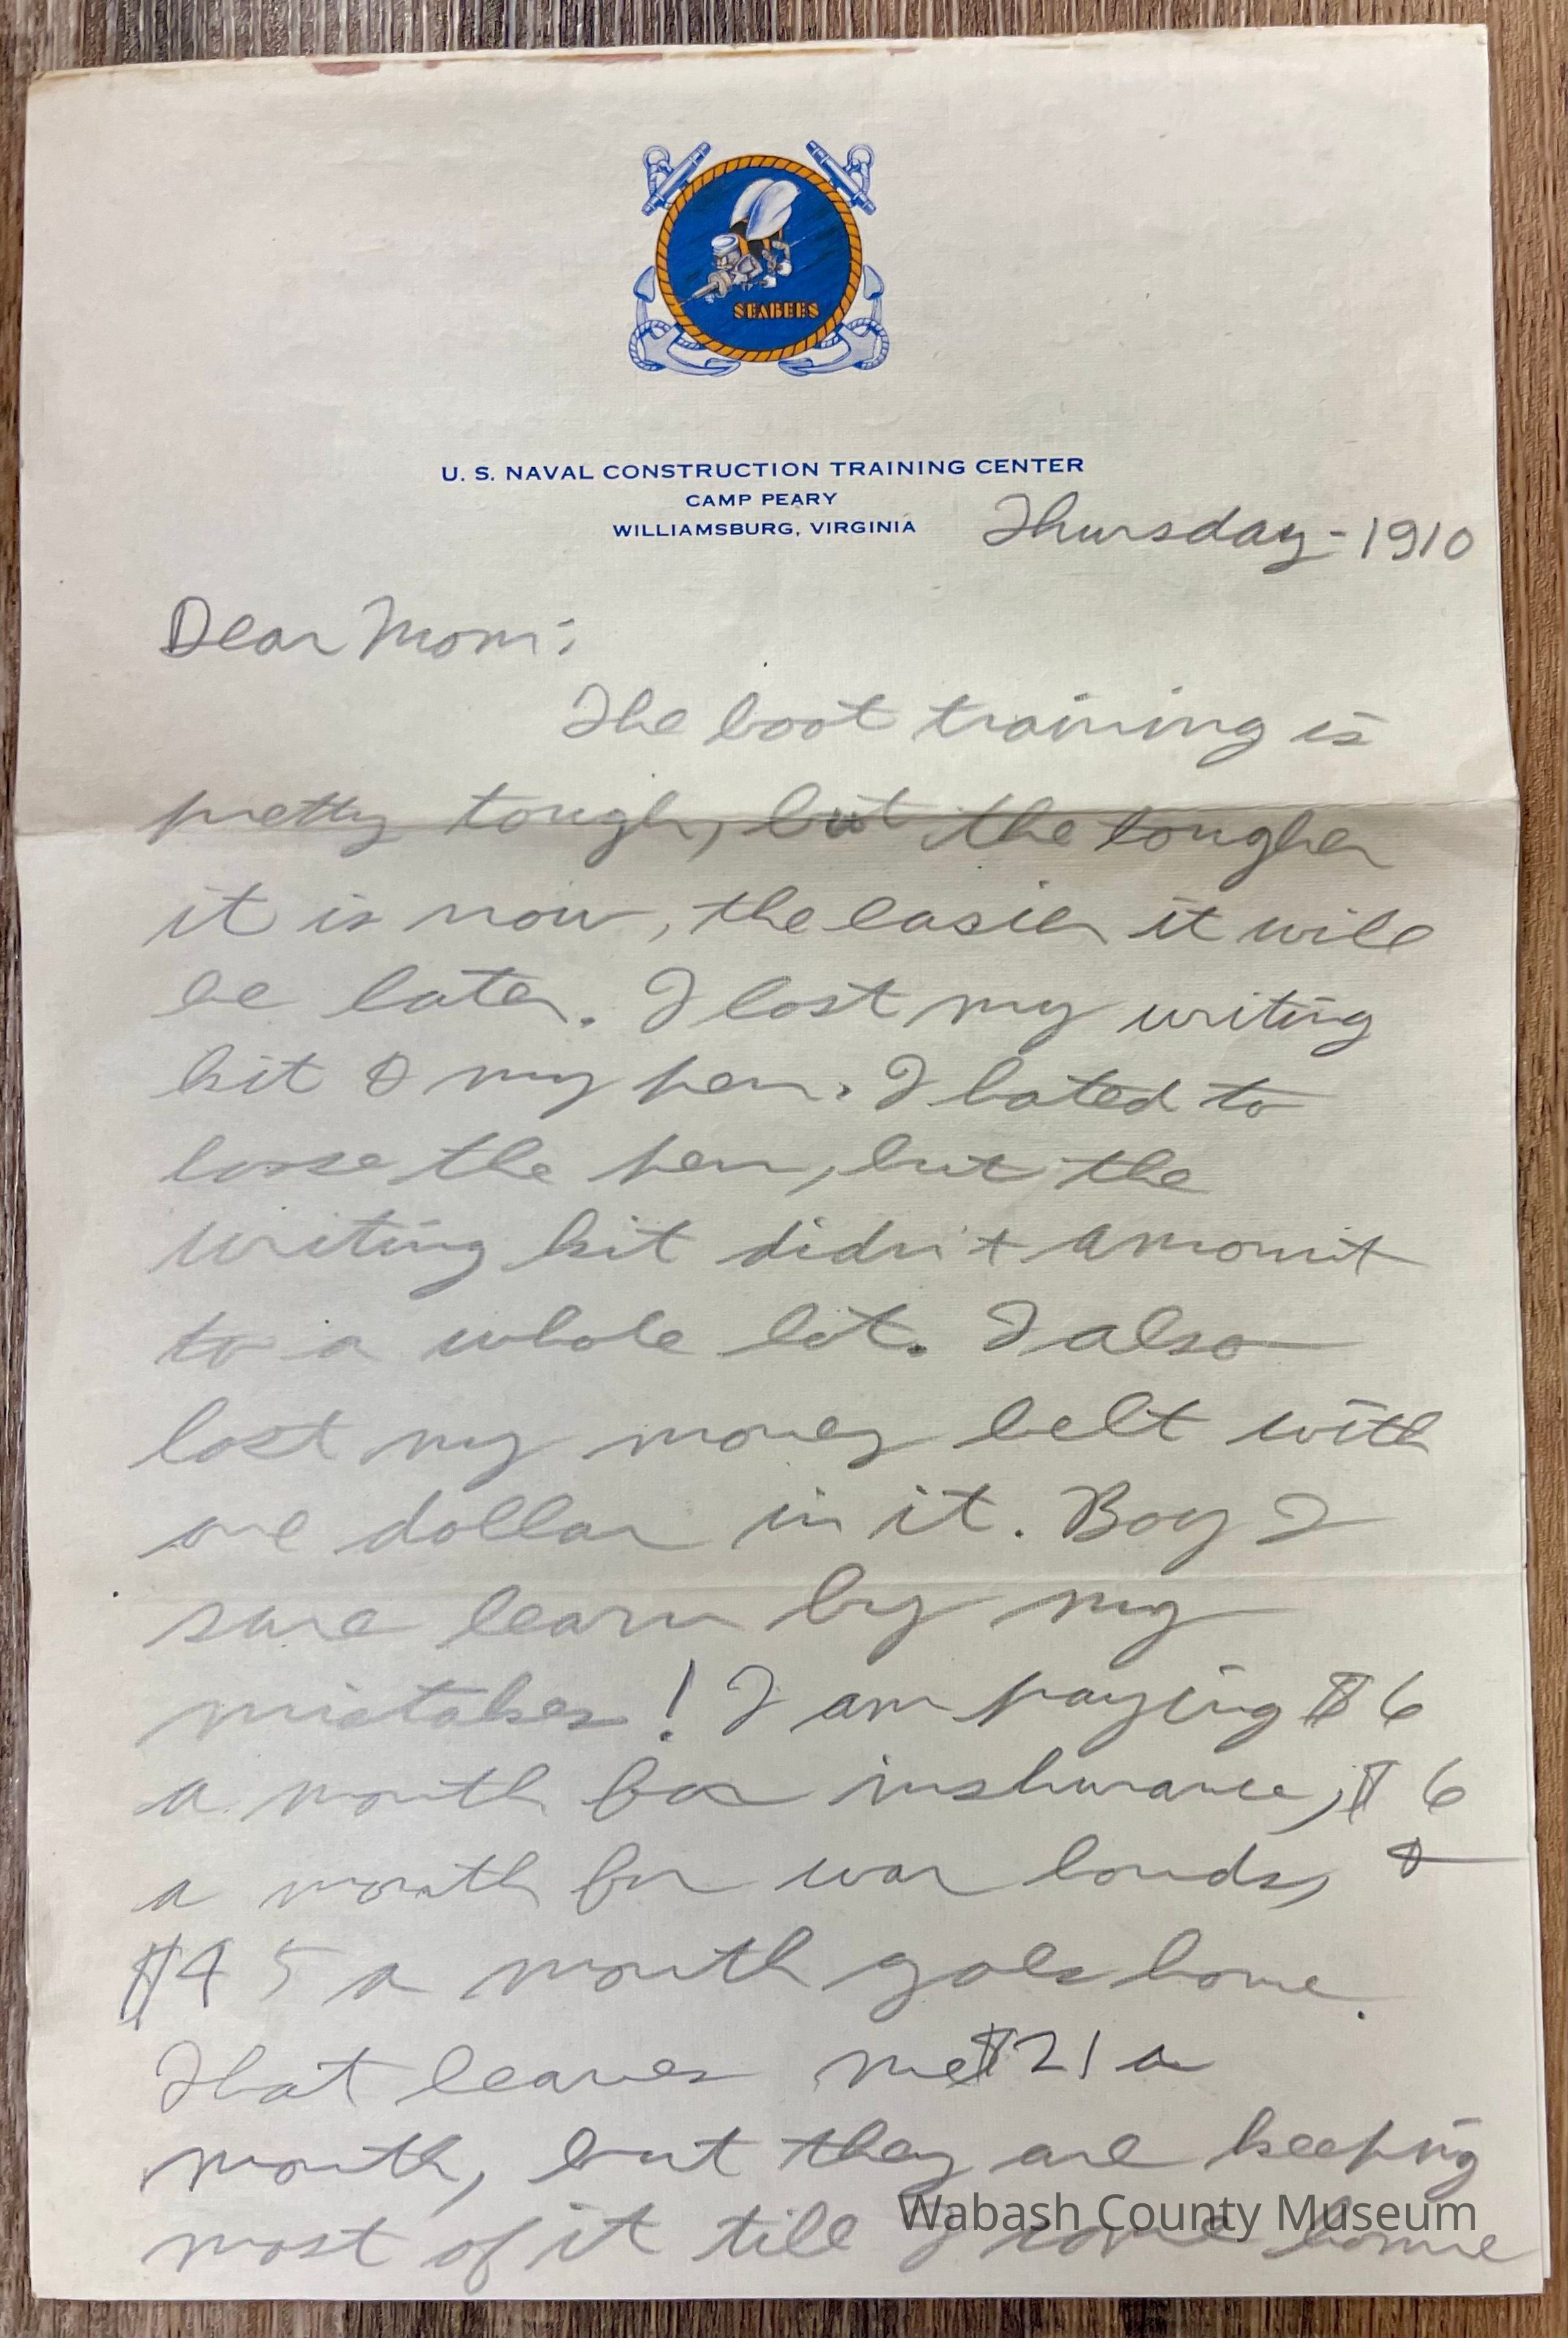 SEABEES
U. S. NAVAL CONSTRUCTION TRAINING CENTER
CAMP PEARY
WILLIAMSBURG, VIRGINIA
Thursday - 1910
Dear Mom:
The boot training is
pretty tough, but the tougher
it is now, the easier it will
be later. I lost my writing
kit & my pen. I hated to
loose the pen, but the
writing kit didn't amount
to a whole lot. I also
lost my money belt with
one dollar in it. Boy I
sure learn by my
mistakes! I am paying $6
a month for inshurance, $6
a month for war bonds, &
$45 a month goes home.
That leaves me $21 a
month, but they are keeping
most of it till I come home
Wabash County Museum